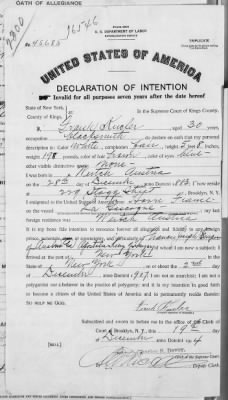 OATH OF ALLEGIANCE
U. S. DEPARTMENT OF LABOR
TRIPLICATE
UNITED STATES OF AMERICA
DECLARATION OF INTENTION
Invalid for all purposes seven years after the date hereof
State of New York,
County of Kings,
In the Supreme Court of Kings County.
I, Frank, aged 30 years,
occupation Blacksmith, do declare on oath that my personal
description is: Color White, complexion Fair, height 5 feet 8 inches,
weight 148 pounds, color of hair Brown, color of eyes blue
other visible distinctive marks None
I was born in Austria
on the 28th day of December, anno Domini; I now reside
at 229, Brooklyn, N. Y.
I emigrated to the United States of America from Havre France
on the vessel La; my last
foreign residence was Austria
It is my bona fide intention to renounce forever all allegiance and fidelity to any foreign
prince, potentate, state, or sovereignty, and particularly to Francis Joseph Emperor
of Austria and Apostolic King of Hungary of whom I am now a subject; I
arrived at the port of New York, in the
State of New York, on or about the day of
December, anno Domini 1907; I am not an anarchist; I am not a
polygamist nor a believer in the practice of polygamy; and it is my intention in good faith
to become a citizen of the United States of America and to permanently reside therein:
SO HELP ME GOD.
Frank
Subscribed and sworn to before me in the office of the Clerk of
Court at Brooklyn, N. Y., this 19th day
of December, anno Domini 1914
[SEAL]
Clerk of the Supreme Court.
Deputy Clerk.